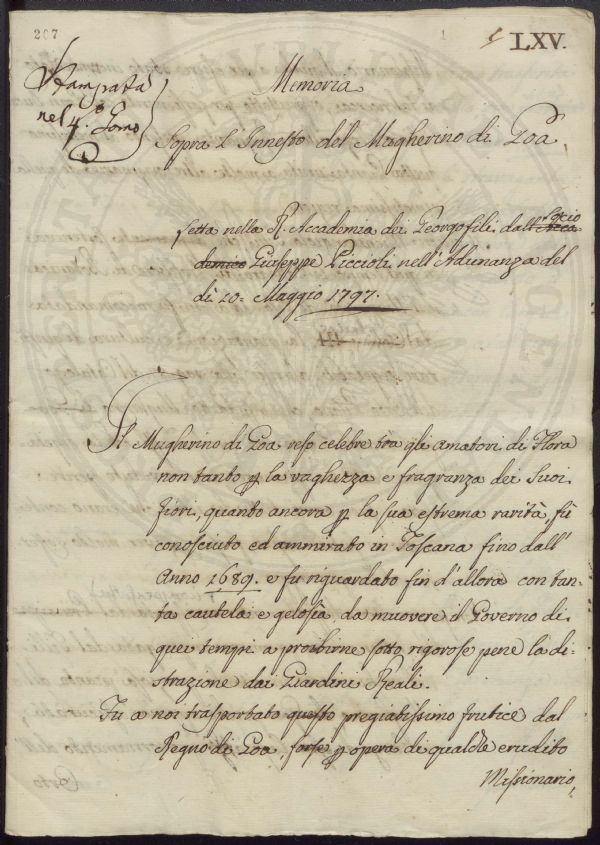 207
1
LXV.
Stampata
nel 4.º Tomo
Memoria
Sopra l'Innesto del Mugherino di Goa
Letta nella R. Accademia dei Georgofili dall' Socio Acca
demico Giuseppe Piccioli nell'Adunanza del
dì 20= Maggio 1797.
Il Mugherino di Goa reso celebre tra gli amatori di Flora
non tanto p la vaghezza e fragranza dei suoi
fiori, quanto ancora p la sua estrema rarità, fù
conosciuto ed ammirato in Toscana fino dall'
Anno 1689. e fu riguardato fin d'allora con tan=
ta cautela e gelosia, da muovere il Governo di
quei tempi a proibirne sotto rigorose pene la di=
strazione dai Giardini Reali.
Fu a noi trasportato questo pregiatissimo frutice dal
Regno di Goa, forse p opera di qualche erudito
Missionario,